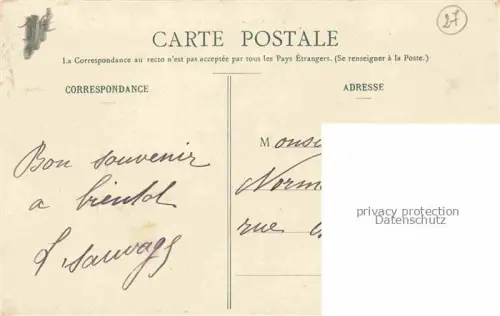 27
CARTE POSTALE
La Correspondance au recto n'est pas acceptée par tous les Pays Étrangers. (Se renseigner à la Poste.)
CORRESPONDANCE
ADRESSE
Bon souvenir
a bientot
L Sauvage
Monsi
Norm
rue
privacy protection
Datenschutz